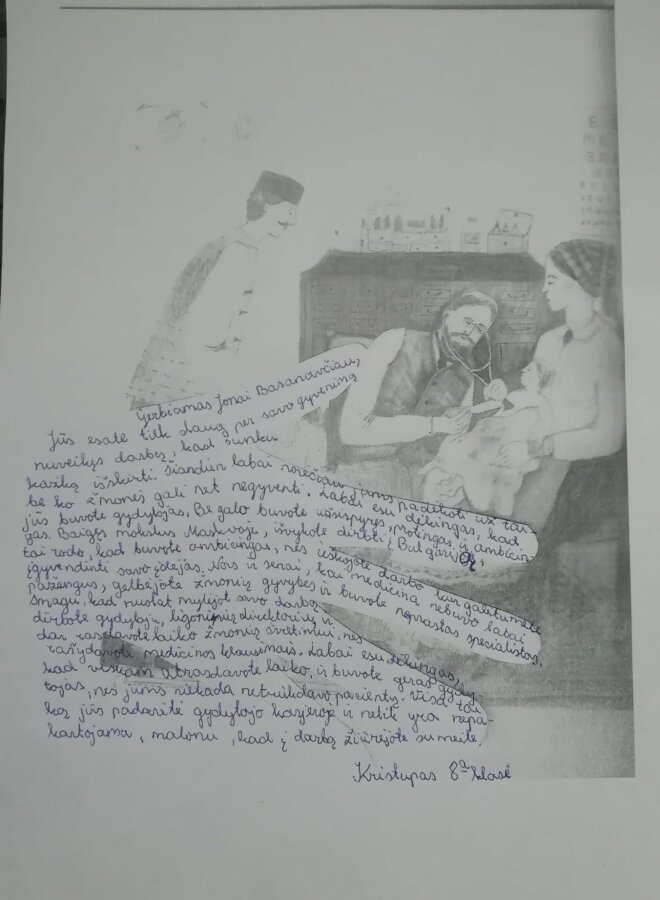 Gerbiamas Jonai Basanavičiau,
Jūs esate tiek daug per savo gyvenimą
nuveikęs darbų, kad sunku
kažką išskirti. Šiandien labai norėčiau jums padėkoti už tai
be ko žmonės gali net negyventi. Labai esu dėkingas, kad
jūs buvote gydytojas. Be galo buvote užsispyręs, protingas ir ambicin
gas. Baigęs mokslus Maskvoje, išvykote dirbti į Bulgariją,
tai rodo, kad buvote ambicingas, nes ieškojote darbo kur galėtumėte
įgyvendinti savo idėjas. Nors ir senai, kai medicina nebuvo labai
pažengus, gelbėjote žmonių gyvybes ir buvote neprastas specialistas.
Smagu, kad nuolat mylėjot savo darbą
dirbote gydytoju, ligoninių direktorium ir
dar rasdavote laiko žmonių švietimui, nes
rašydavote medicinos klausimais. Labai esu dėkingas,
kad viskam atrasdavote laiko, ir buvote geras gydy-
tojas, nes jums niekada netruko pacientų. Visa tai
ką jūs padarėte gydytojo karjeroje ir nelik yra nepa-
kartojama, malonu, kad į darbą žiūrėjote su meile.
Kristupas 8ª klasė